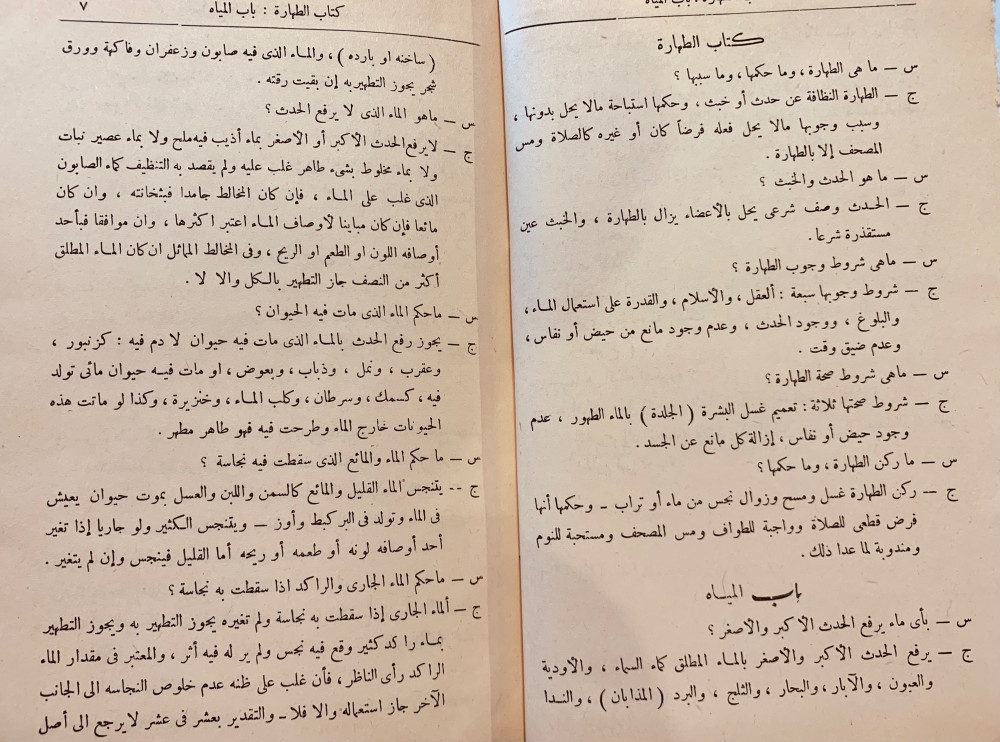 كتاب الطهارة
س — ما هى الطهارة، وما حكمها، وما سببها؟
ج — الطهارة النظافة عن حدث أو خبث، وحكمها استباحة مالا يحل بدونها،
وسبب وجوبها مالا يحل فعله فرضاً كان أو غيره كالصلاة ومس
المصحف إلا بالطهارة.
س — ما هو الحدث والخبث؟
ج — الحدث وصف شرعى يحل بالأعضاء يزال بالطهارة، والخبث عين
مستقذرة شرعا.
س — ماهى شروط وجوب الطهارة؟
ج — شروط وجوبها سبعة: ألعقل، والاسلام، والقدرة على استعمال الماء،
والبلوغ، ووجود الحدث، وعدم وجود مانع من حيض أو نفاس،
وعدم ضيق وقت.
س — ماهى شروط صحة الطهارة؟
ج — شروط صحتها ثلاثة: تعميم غسل البشرة (الجلدة) بالماء الطهور، عدم
وجود حيض أو نفاس، إزالة كل مانع عن الجسد.
س — ما ركن الطهارة، وما حكمها؟
ج — ركن الطهارة غسل ومسح وزوال نجس من ماء أو تراب — وحكمها أنها
فرض قطعى للصلاة وواجبة للطواف ومس المصحف ومستحبة للنوم
ومندوبة لما عدا ذلك.
باب المياه
س — بأى ماء يرفع الحدث الأكبر والأصغر؟
ج — يرفع الحدث الأكبر والأصغر بالماء المطلق كماء السماء، والأودية
والعيون، والآبار، والبحار، والثلج، والبرد (المذابان)، والندا
كتاب الطهارة: باب المياه ٧
(ساخنه او بارده)، والماء الذى فيه صابون وزعفران وفاكهة وورق
شجر يجوز التطهير به إن بقيت رقته.
س — ماهو الماء الذى لا يرفع الحدث؟
ج — لايرفع الحدث الأكبر أو الأصغر بماء أذيب فيه ملح ولا بماء عصير نبات
ولا بماء مخلوط بشىء طاهر غلب عليه ولم يقصد به التنظيف كماء الصابون
الذى غلب على الماء، فإن كان المخالط جامدا فبثخانته، وان كان
مائعا فإن كان مباينا لأوصاف الماء اعتبر اكثرها، وان موافقا فبأحد
أوصافه اللون او الطعم او الريح، وفى المخالط المماثل ان كان الماء المطلق
أكثر من النصف جاز التطهير بالكل والا لا.
س — ماحكم الماء الذى مات فيه الحيوان؟
ج — يجوز رفع الحدث بالماء الذى مات فيه حيوان لا دم فيه: كزنبور،
وعقرب، ونمل، وذباب، وبعوض، او مات فيه حيوان مائى تولد
فيه، كسمك، وسرطان، وكلب الماء، وخنزيرة، وكذا لو ماتت هذه
الحيونات خارج الماء وطرحت فيه فهو طاهر مطهر.
س — ما حكم الماء والمائع الذى سقطت فيه نجاسة؟
ج -- يتنجس الماء القليل والمائع كالسمن واللبن والعسل بموت حيوان يعيش
فى الماء وتولد فى البر كبط وأوز — ويتنجس الكثير ولو جاريا إذا تغير
أحد أوصافه لونه أو طعمه أو ريحه أما القليل فينجس وإن لم يتغير.
س — ماحكم الماء الجارى والراكد اذا سقطت به نجاسة؟
ج — ألماء الجارى إذا سقطت به نجاسة ولم تغيره يجوز التطهير به ويجوز التطهير
بماء راكد كثير وقع فيه نجس ولم ير له فيه أثر، والمعتبر فى مقدار الماء
الراكد رأى الناظر، فأن غلب على ظنه عدم خلوص النجاسه الى الجانب
الآخر جاز استعماله والا فلا — والتقدير بعشر فى عشر لايرجع الى أصل